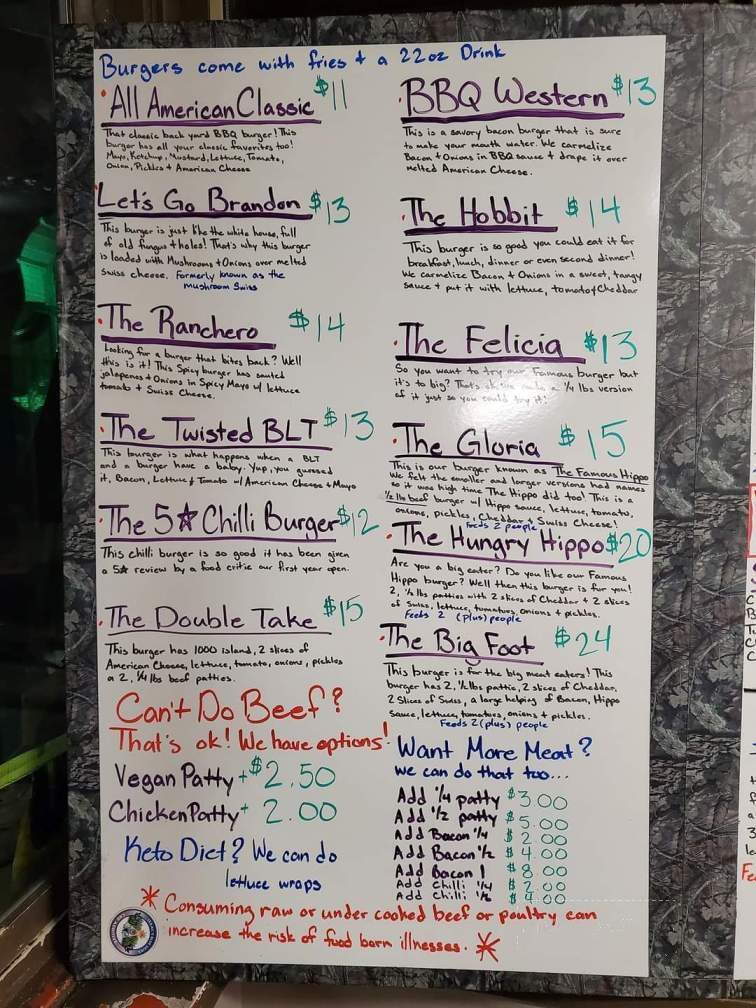 Burgers come with fries + a 22oz Drink
All American Classic $11
That classic back yard BBQ burger! This
burger has all your classic favorites too!
Mayo, Ketchup, Mustard, Lettuce, Tomato,
Onion, Pickles + American Cheese
Let's Go Brandon $13
This burger is just like the white house, full
of old fungus + holes! That's why this burger
is loaded with Mushrooms + Onions over melted
Swiss cheese. Formerly known as the
mushroom Swiss
The Ranchero $14
Looking for a burger that bites back? Well
this is it! This Spicy burger has sauted
jalapenos + Onions in Spicy Mayo w/ lettuce
tomato + Swiss Cheese.
The Twisted BLT $13
This burger is what happens when a BLT
and a burger have a baby. Yup, you guessed
it, Bacon, Lettuce & Tomato w/ American Cheese + Mayo
The 5☆ Chilli Burger $12
This chilli burger is so good it has been given
a 5☆ review by a food critic our first year open.
The Double Take $15
This burger has 1000 island, 2 slices of
American Cheese, lettuce, tomato, onions, pickles
a 2, 1/4 lbs beef patties.
Can't Do Beef?
That's ok! We have options!
Vegan Patty + $2.50
Chicken Patty + 2.00
Keto Diet? We can do
lettuce wraps
BBQ Western $13
This is a savory bacon burger that is sure
to make your mouth water. We carmelize
Bacon + Onions in BBQ sauce + drape it over
melted American Cheese.
The Hobbit $14
This burger is so good you could eat it for
breakfast, lunch, dinner or even second dinner!
We carmelize Bacon + Onions in a sweet, tangy
sauce + put it with lettuce, tomato & Cheddar
The Felicia $13
So you want to try our Famous burger but
it's to big? That's ok, we make a 1/4 lbs version
of it just so you could try it!
The Gloria $15
This is our burger known as The Famous Hippo
We felt the smaller and larger versions had names
so it was high time The Hippo did too! This is a
1/2 lb beef burger w/ Hippo sauce, lettuce, tomato,
onions, pickles, Cheddar & Swiss Cheese!
Feeds 2 people
The Hungry Hippo $20
Are you a big eater? Do you like our Famous
Hippo burger? Well then this burger is for you!
2, 1/2 lbs patties with 2 slices of Cheddar + 2 slices
of Swiss, lettuce, tomatoes, onions + pickles.
Feeds 2 (plus) people
The Big Foot $24
This burger is for the big meat eaters! This
burger has 2, 1/2 lbs pattie, 2 slices of Cheddar,
2 Slices of Swiss, a large helping of Bacon, Hippo
Sauce, lettuce, tomatoes, onions + pickles.
Feeds 2 (plus) people
Want More Meat?
we can do that too...
Add 1/4 patty $3.00
Add 1/2 patty $5.00
Add Bacon 1/4 $2.00
Add Bacon 1/2 $4.00
Add Bacon 1 $8.00
Add Chilli 1/4 $2.00
Add Chilli 1/2 $4.00
* Consuming raw or under cooked beef or poultry can
increase the risk of food born illnesses. *